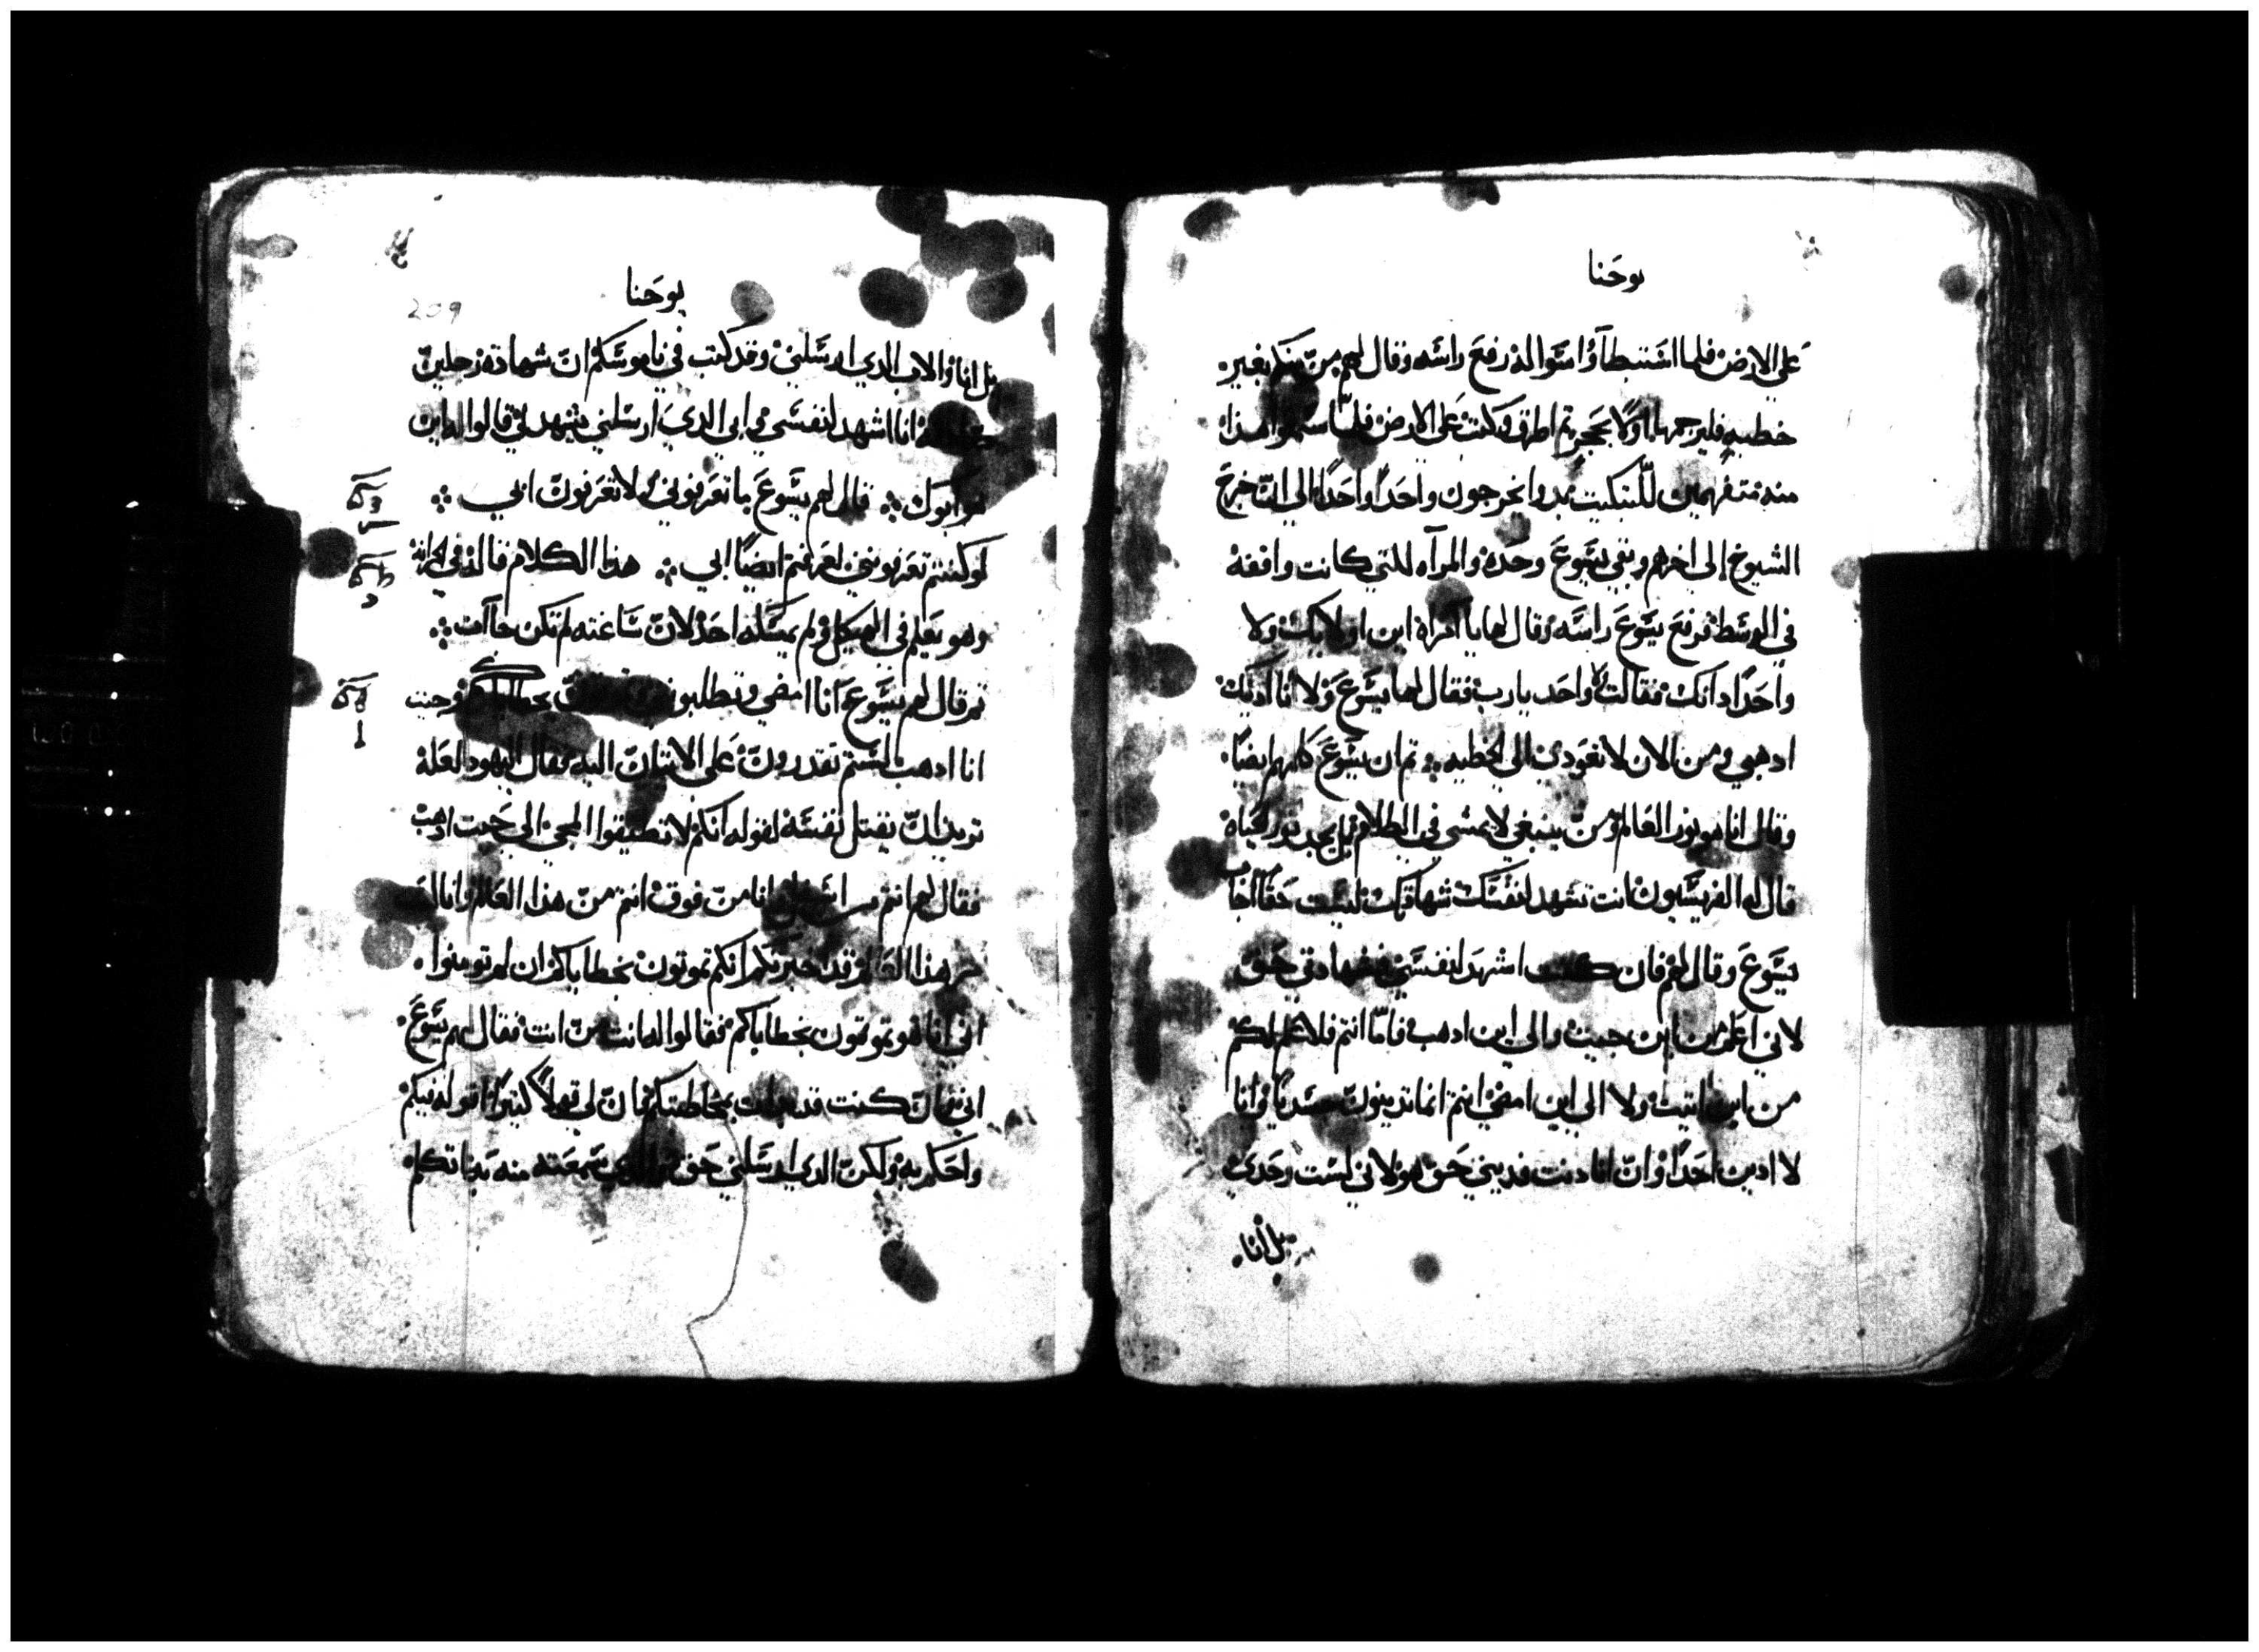 يوحنا
على الارض فلما استبطاوا سواله رفع راسه وقال لهم من منكم بغير
خطيه فليرجمها اولا بحجر ثم اطرق وكتب على الارض فلما سمعوا هذا
منه متفهمين للتبكيت بدوا يخرجون واحدا واحدا الى ان خرج
الشيوخ الى اخرهم وبقي يسوع وحده والمرآه للتي كانت واقفه
في الوسط فرفع يسوع راسه وقال لها يا امراه اين اوليك ولا
واحدا دانك فقالت ولا واحد يا رب فقال لها يسوع ولا انا ادينك
ادهبي ومن الان لا تعودي الى الخطيه ثم ان يسوع كلمهم ايضا
وقال انا هو نور العالم ومن يتبعني لا يمشي في الظلام بل يجد نور الحياه
قال له الفريسيون انت تشهد لنفسك شهادتك ليست حقا اجاب
يسوع وقال لهم فان كنت اشهد لنفسي فشهادتي حق
لاني اعلم من اين جيت والى اين ادهب فاما انتم فلا علم لكم
من اين اتيت ولا الى اين امضي انتم انما تدينون جسديا وانا
لا ادين احدا وان انا دنت فديني حق هو لاني لست وحدي
بل انا
يوحنا
209
بل انا والاب الدي ارسلني وقد كتب في ناموسكم ان شهادة رجلين
انا اشهد لنفسي وابي الدي ارسلني يشهد لي قالوا له اين
هو ابوك قال لهم يسوع ما تعرفوني ولا تعرفون ابي
لو كنتم تعرفونني لعرفتم ايضا ابي هدا الكلام قاله في الخزانه
وهو يعلم في الهيكل ولم يمسكه احد لان ساعته لم تكن جات
ثم قال لهم يسوع انا امضي وتطلبوني وحيت
انا ادهب لستم تقدرون على الاتيان اليه فقال اليهود لعله
يريد ان يقتل نفسه لقوله انكم لا تطيقوا المجي الى حيت ادهب
فقال لهم انتم من اسفل وانا من فوق انتم من هذا العالم وانا لست
من هذا العالم قد خبرتكم انكم تموتون بخطاياكم ان لم تومنوا
اني انا هو تموتون بخطاياكم فقالوا له انت من انت فقال لهم يسوع
اني وان كنت قد بدات بمخاطبتكم فان لي قولا كثيرا اقوله فيكم
واحكم به ولكن الدي ارسلني حق والدي سمعته منه به اتكلم